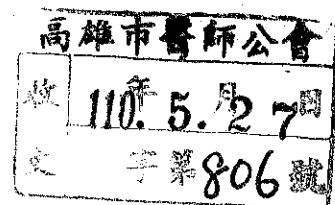 高雄市醫師公會
收 110年5月27日
文 字第806號